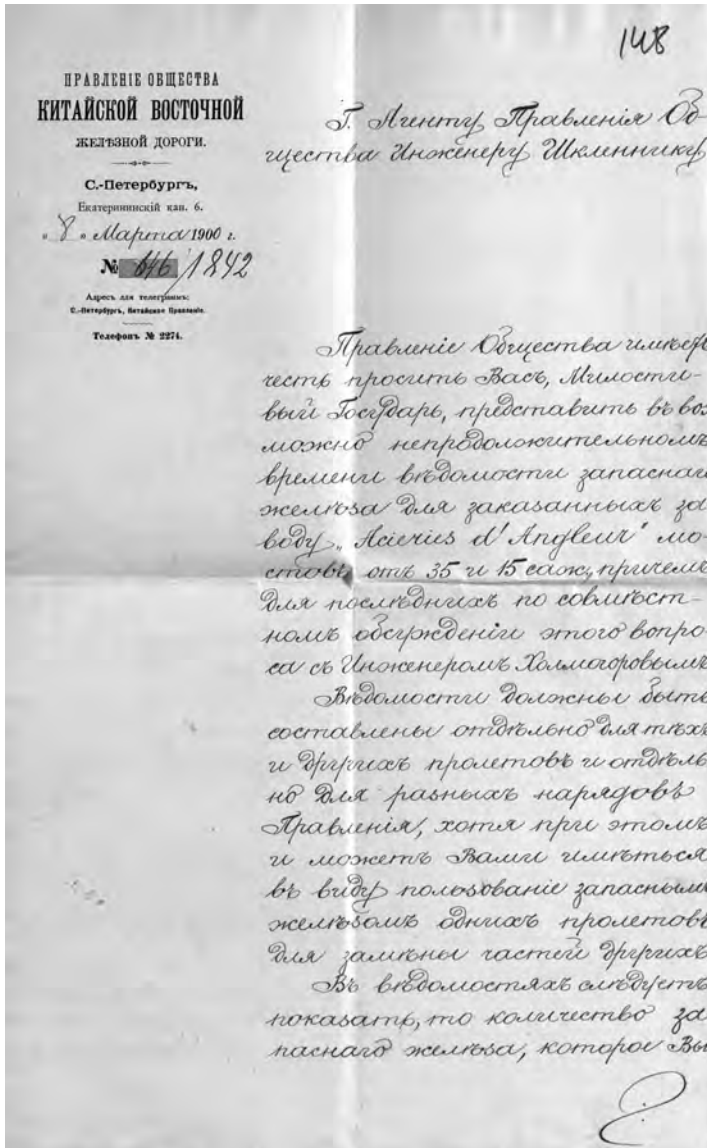 148
ПРАВЛЕНІЕ ОБЩЕСТВА
КИТАЙСКОЙ ВОСТОЧНОЙ
ЖЕЛѢЗНОЙ ДОРОГИ.
С.-Петербургъ,
Екатерининскій кан. 6.
„ 8 „ Марта 1900 г.
№ 646/1842
Адресъ для телеграммъ:
С.-Петербургъ, Китайское Правленіе.
Телефонъ № 2274.
Г. Агенту Правленія Об-
щества Инженеру Шкленнику
Правленіе Общества имѣетъ
честь просить Васъ, Милости-
вый Государь, представить въ воз
можно непродолжительномъ
времени вѣдомости запаснаг
желѣза для заказанныхъ за
воду „Acieries d'Angleur" мо-
стовъ отъ 35 и 15 саж, причемъ
для послѣднихъ по совмѣст-
номъ обсужденіи этого вопро
са съ Инженеромъ Холмогоровымъ
Вѣдомости должны быть
составлены отдѣльно для тѣхъ
и другихъ пролетовъ и отдѣль
но для разныхъ нарядовъ
Правленія, хотя при этомъ
и можетъ Вами имѣться
въ виду пользованіе запаснымъ
желѣзомъ однихъ пролетовъ
для замѣны частей другихъ
Въ вѣдомостяхъ слѣдуетъ
показать, то количество за
паснаго желѣза, которое Вы